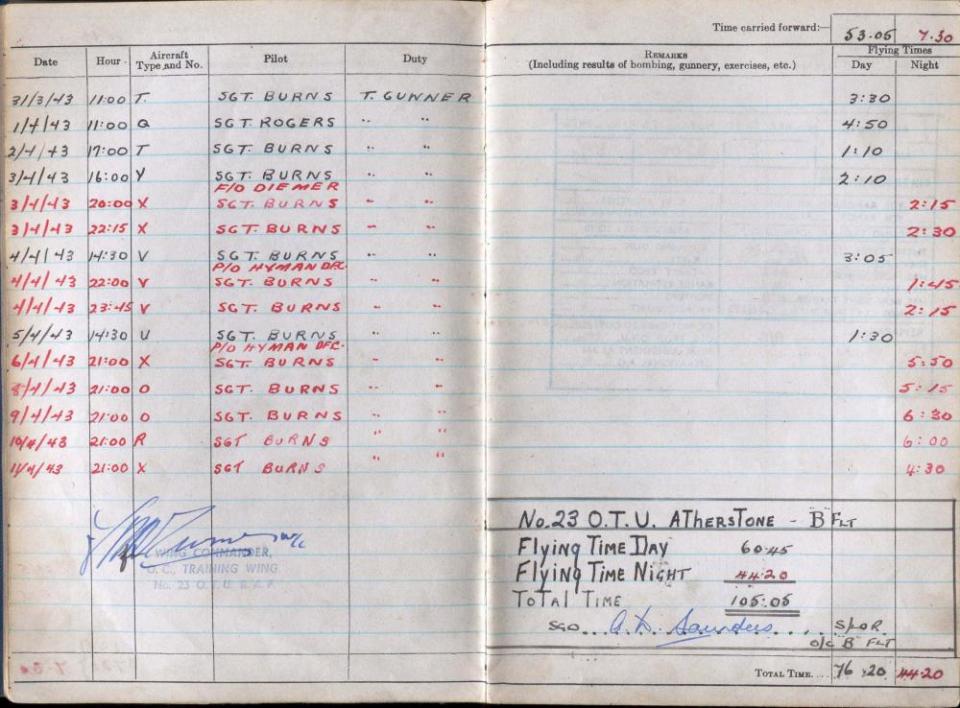 Time carried forward:— 53.05 7.30
Date Hour Aircraft Type and No. Pilot Duty REMARKS (Including results of bombing, gunnery, exercises, etc.) Flying Times Day Night
31/3/43 11:00 T. SGT. BURNS T. GUNNER 3:30
1/4/43 11:00 Q SGT. ROGERS " " 4:50
2/4/43 17:00 T SGT. BURNS " " 1:10
3/4/43 16:00 Y SGT. BURNS " " 2:10
F/O DIEMER
3/4/43 20:00 X SGT. BURNS " " 2:15
3/4/43 22:15 X SGT. BURNS " " 2:30
4/4/43 14:30 V SGT. BURNS " " 3:05
P/O HYMAN DFC.
4/4/43 22:00 V SGT. BURNS " " 1:45
4/4/43 23:45 V SGT. BURNS " " 2:15
5/4/43 14:30 U SGT. BURNS " " 1:30
P/O HYMAN DFC.
6/4/43 21:00 X SGT. BURNS " " 5:50
8/4/43 21:00 O SGT. BURNS " " 5:15
9/4/43 21:00 O SGT. BURNS " " 6:30
10/4/43 21:00 R SGT BURNS " " 6:00
11/4/43 21:00 X SGT BURNS " " 4:30
W/C
WING COMMANDER,
O. C., TRAINING WING
No. 23 O. T. U. R.A.F.
No. 23 O.T.U. ATHERSTONE - B FLT
Flying TIME DAY 60.45
Flying TIME NIGHT 44.20
TOTAL TIME 105:05
SGD... A. D. Saunders .... S/LDR
O/C B FLT
TOTAL TIME.... 76.20 44.20